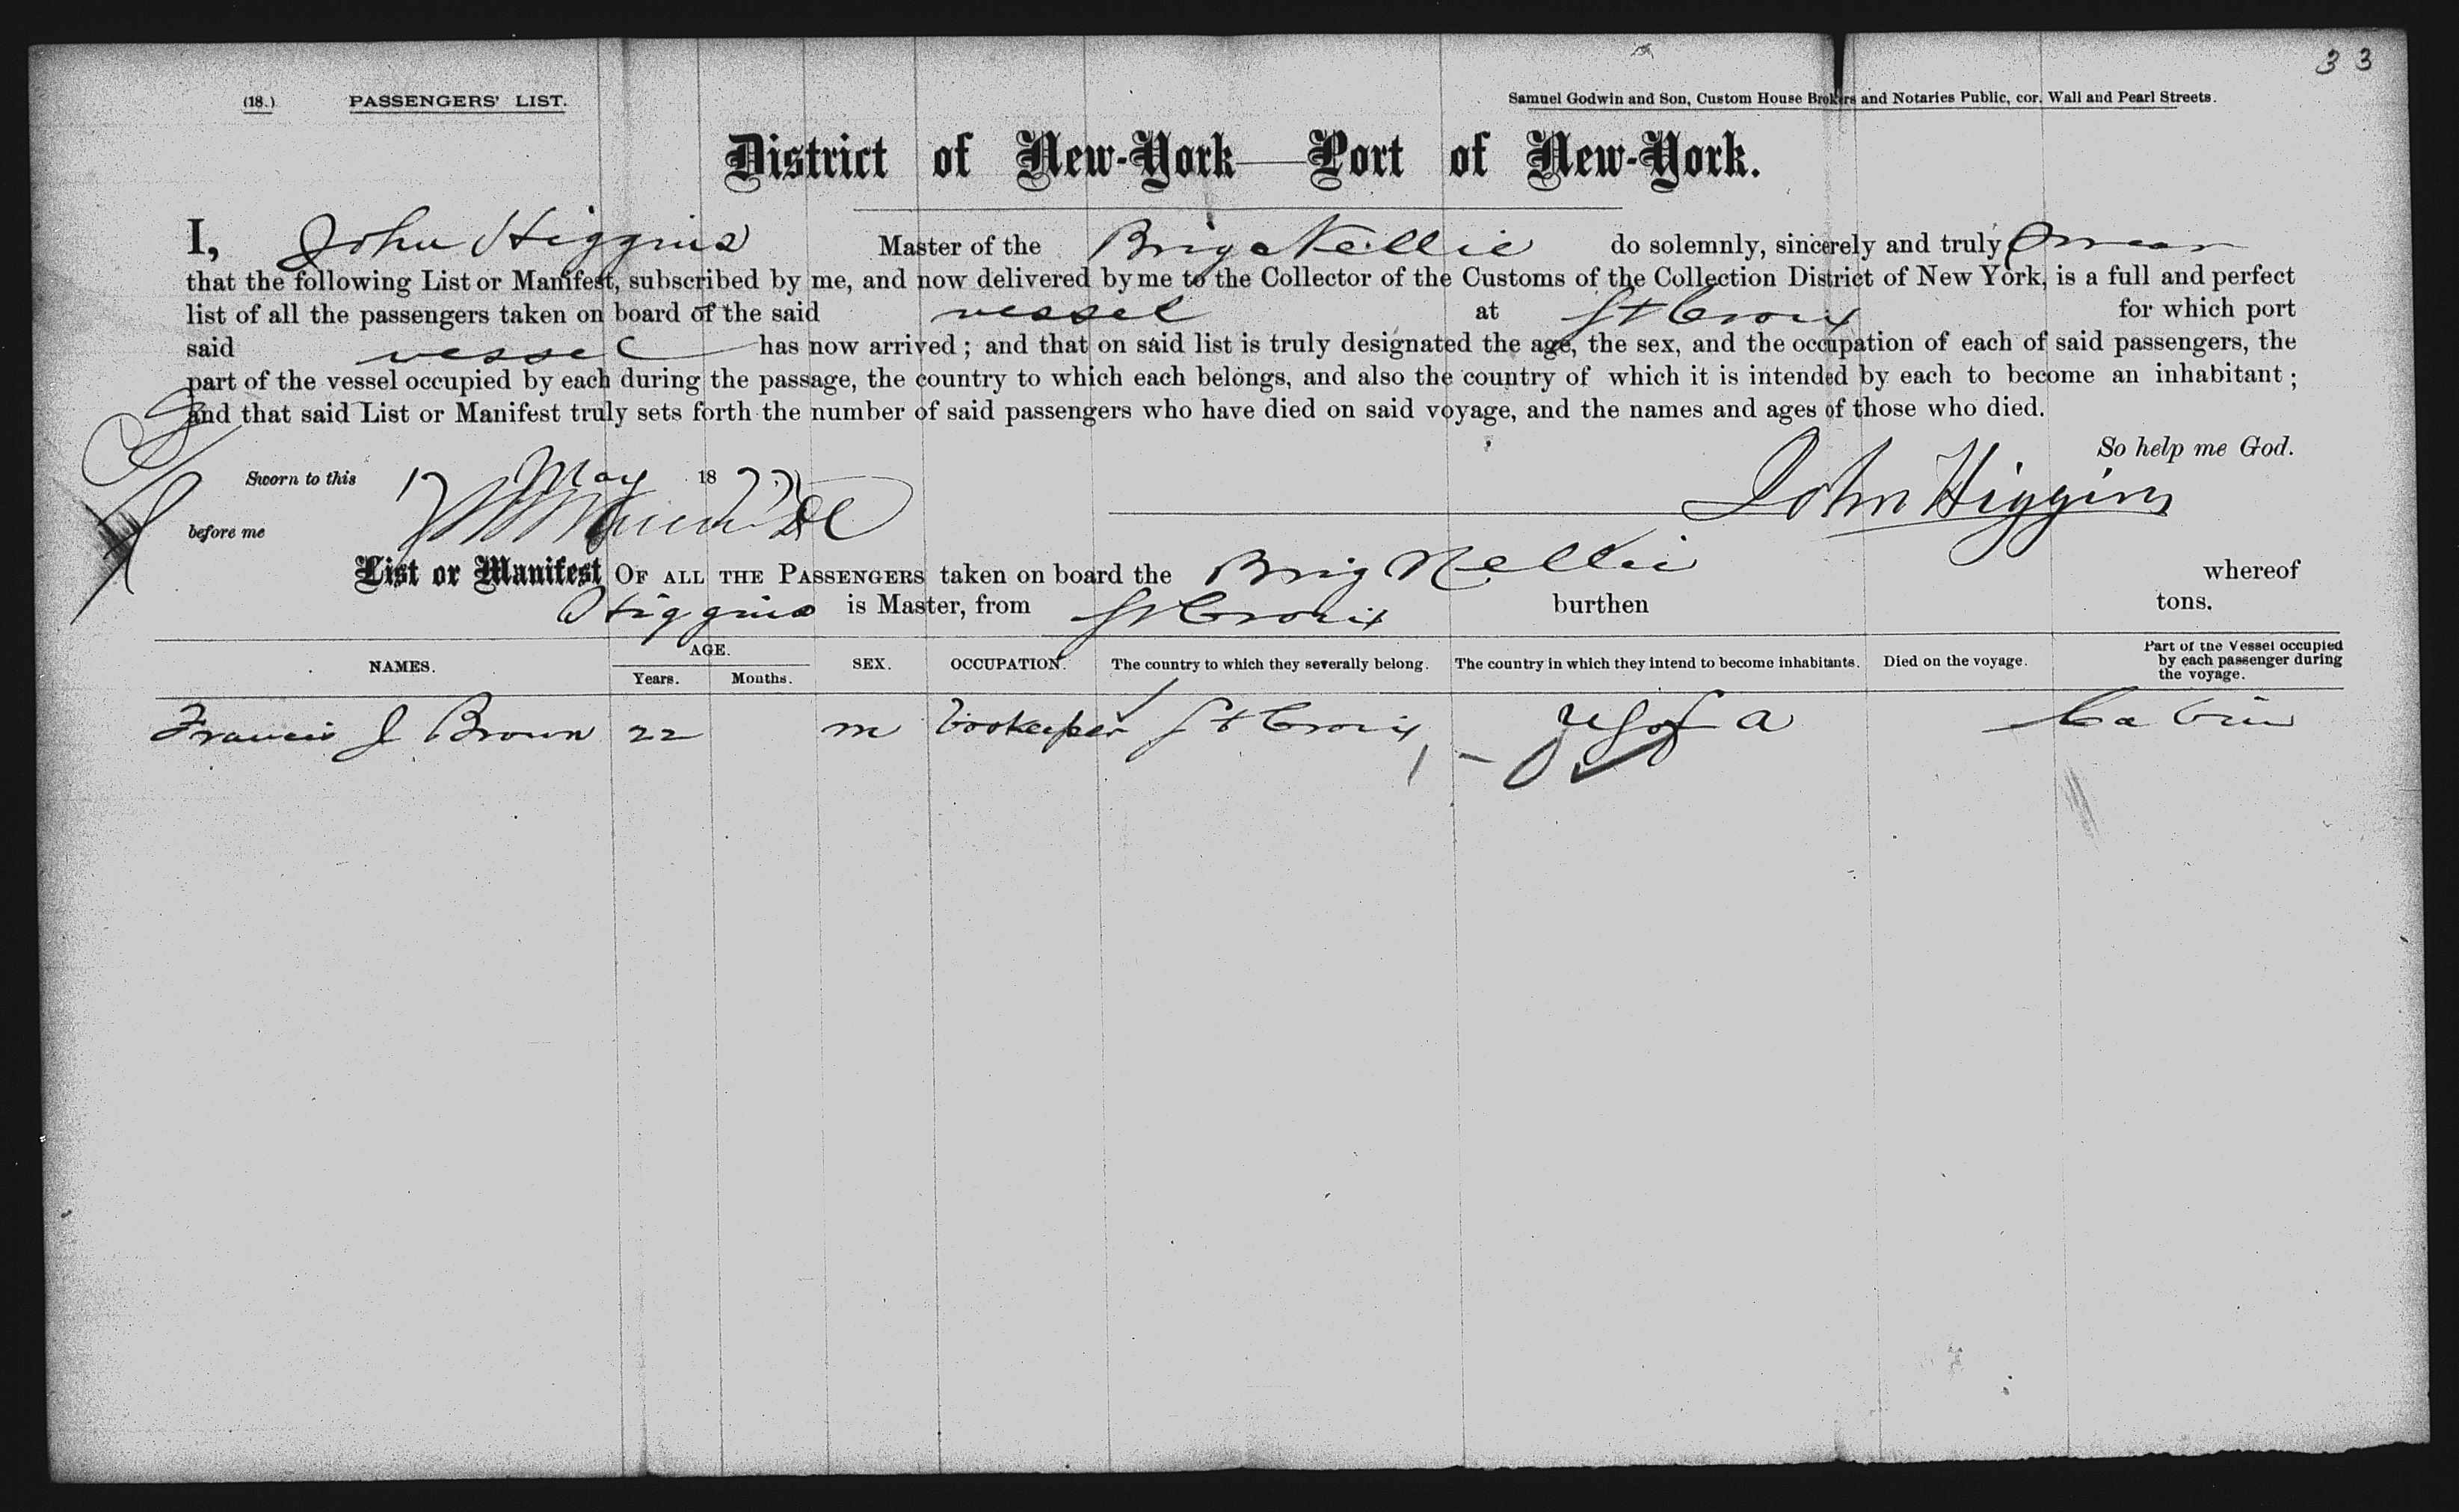 33
(18.) PASSENGERS' LIST. Samuel Godwin and Son, Custom House Brokers and Notaries Public, cor. Wall and Pearl Streets.
District of New-York—Port of New-York.
I, John Higgins Master of the Brig Nellie do solemnly, sincerely and truly swear
that the following List or Manifest, subscribed by me, and now delivered by me to the Collector of the Customs of the Collection District of New York, is a full and perfect
list of all the passengers taken on board of the said vessel at St Croix for which port
said vessel has now arrived; and that on said list is truly designated the age, the sex, and the occupation of each of said passengers, the
part of the vessel occupied by each during the passage, the country to which each belongs, and also the country of which it is intended by each to become an inhabitant;
and that said List or Manifest truly sets forth the number of said passengers who have died on said voyage, and the names and ages of those who died.
So help me God.
Sworn to this 17 May 1877 John Higgins
before me
List or Manifest OF ALL THE PASSENGERS taken on board the Brig Nellie whereof
Higgins is Master, from St Croix burthen tons.
NAMES. AGE. Years. Months. SEX. OCCUPATION. The country to which they severally belong. The country in which they intend to become inhabitants. Died on the voyage. Part of the Vessel occupied by each passenger during the voyage.
Francis J Brown 22 m bookeeper St Croix US of A Cabin